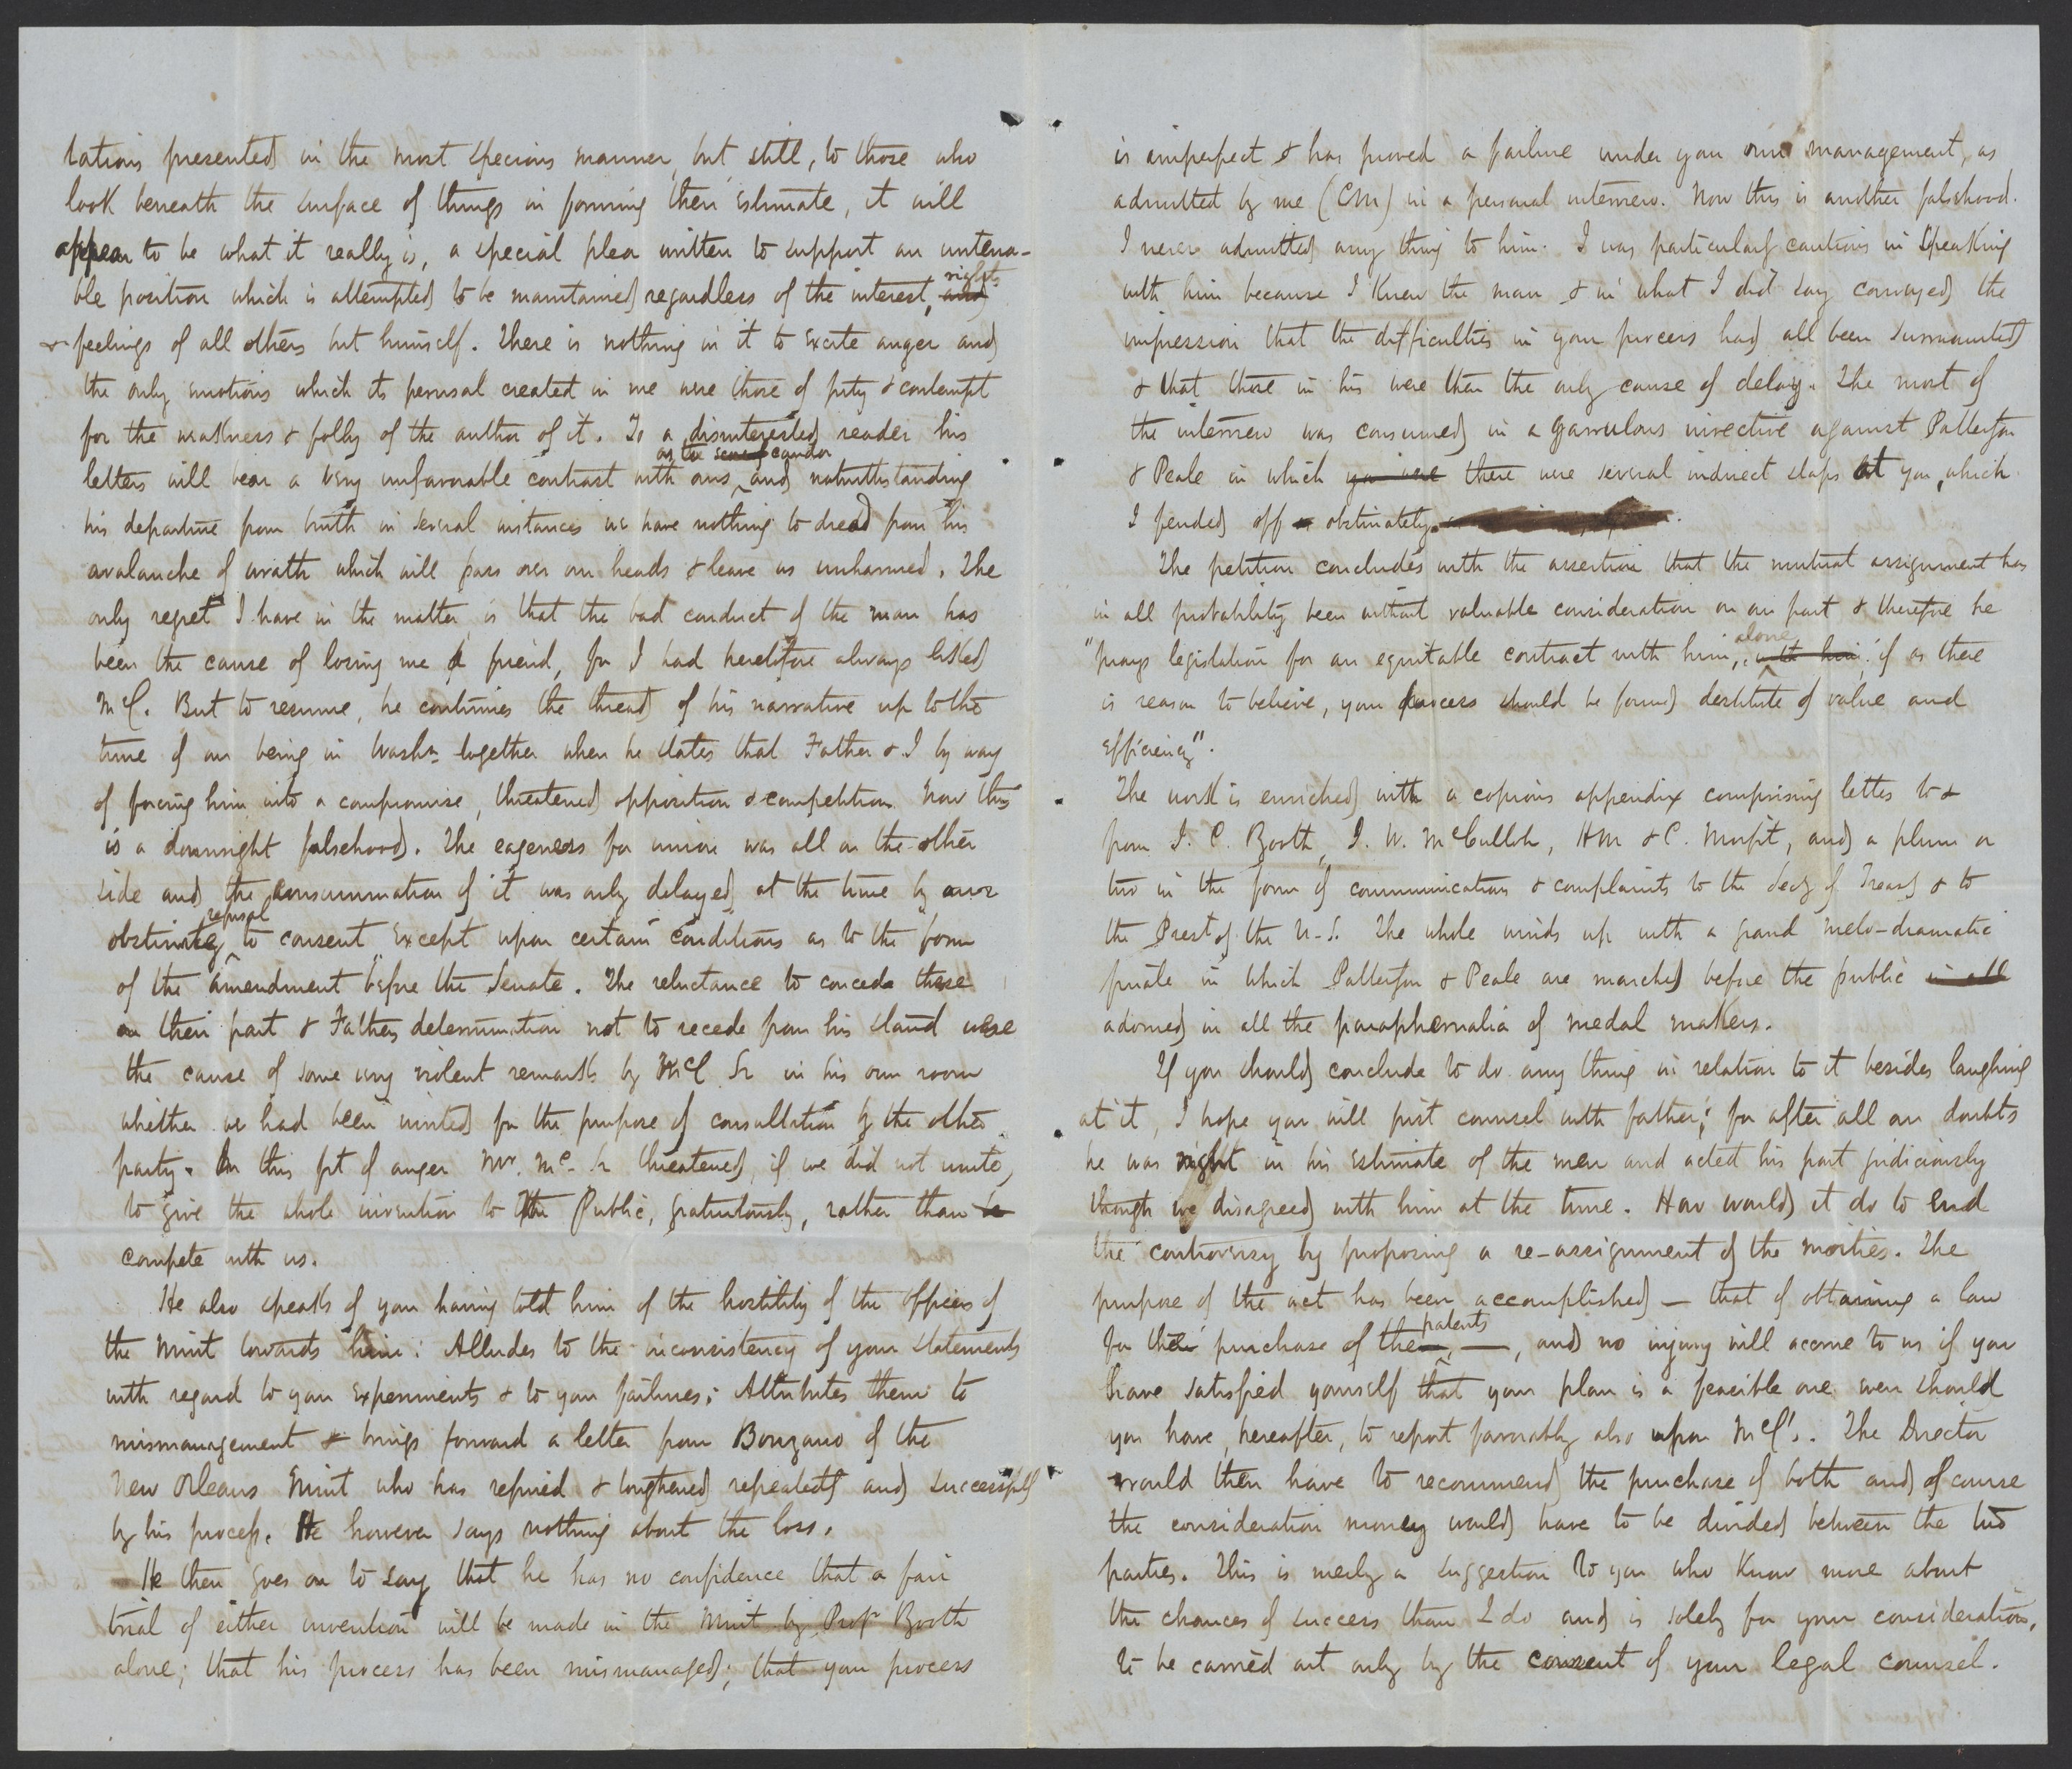 tations presented in the most specious manner, but still, to those who
look beneath the surface of things in forming their estimate, it will
appear to be what it really is, a special plea written to support an untena-
ble position which is attempted to be maintained regardless of the interest, rights and
& feelings of all others but himself. There is nothing in it to excite anger and
the only emotions which its perusal created in me were those of pity & contempt
for the weakness & folly of the author of it. To a disinterested reader his
letters will bear a very unfavorable contrast with ours, as to candor and notwithstanding
his departure from truth in several instances we have nothing to dread from his
avalanche of wrath which will pass over our heads & leave us unharmed. The
only regret I have in the matter is that the bad conduct of the man has
been the cause of losing me a friend, for I had heretofore always liked
McC. But to resume, he continues the thread of his narrative up to the
time of our being in Washn together when he states that Father & I by way
of forcing him into a compromise, threatened opposition & competition. Now this
is a downright falsehood. The eagerness for union was all on the other
side and the consummation of it was only delayed at the time by our
obstinate refusal to consent except upon certain conditions as to the form
of the amendment before the Senate. The reluctance to concede these
on their part & Fathers determination not to recede from his stand were
the cause of some very violent remarks by McC Sr in his own room
whither we had been invited for the purpose of consultation by the other
party. In this fit of anger Mr. Mc- Sr threatened, if we did not unite,
to give the whole invention to the Public, gratuitously, rather than to
compete with us.
He also speaks of you having told him of the hostility of the Officers of
the Mint towards him: Alludes to the inconsistency of your statements
with regard to your experiments & to your failures; Attributes them to
mismanagement & brings forward a letter from Bonzano of the
New Orleans Mint who has refined & toughened repeatedly and successfully
by his process. He however says nothing about the loss.
He then goes on to say that he has no confidence that a fair
trial of either invention will be made in the Mint by Prof Booth
alone; that his process has been mismanaged; that your process
is imperfect & has proved a failure under your own management, as
admitted by me (CM) in a personal interview. Now this is another falsehood.
I never admitted any thing to him. I was particularly cautious in speaking
with him because I knew the man & in what I did say conveyed the
impression that the difficulties in your process had all been surmounted
& that those in his were then the only cause of delay. The most of
the interview was consumed in a garrulous invective against Patterson
& Peale in which you were there were several indirect slaps at you, which
I fended off obstinately.
The petition concludes with the assertion that the mutual assignment has
in all probability been without valuable consideration on our part & therefore he
"prays legislation for an equitable contract with him, alone with him, if as there
is reason to believe, your process should be found destitute of value and
efficiency".
The work is enriched with a copious appendix comprising letters to &
from J. C. Booth, J. W. McCulloh, HM & C. Morfit, and a plum or
two in the form of communications & complaints to the Secy of Treasy & to
the Prest of the U.S. The whole winds up with a grand melo-dramatic
finale in which Patterson & Peale are marched before the public in all
adorned in all the paraphernalia of medal makers.
If you should conclude to do any thing in relation to it besides laughing
at it, I hope you will first counsel with father; for after all our doubts
he was right in his estimate of the men and acted his part judiciously
though we disagreed with him at the time. How would it do to end
the controversy by proposing a re-assignment of the moities. The
purpose of the act has been accomplished — that of obtaining a law
for their purchase of the patents —, and no injury will accrue to us if you
have satisfied yourself that your plan is a feasible one even should
you have, hereafter, to report favorably also upon McC's. The Director
would then have to recommend the purchase of both and of course
the consideration money would have to be divided between the two
parties. This is merely a suggestion to you who know more about
the chances of success than I do and is solely for your consideration,
to be carried out only by the consent of your legal counsel.